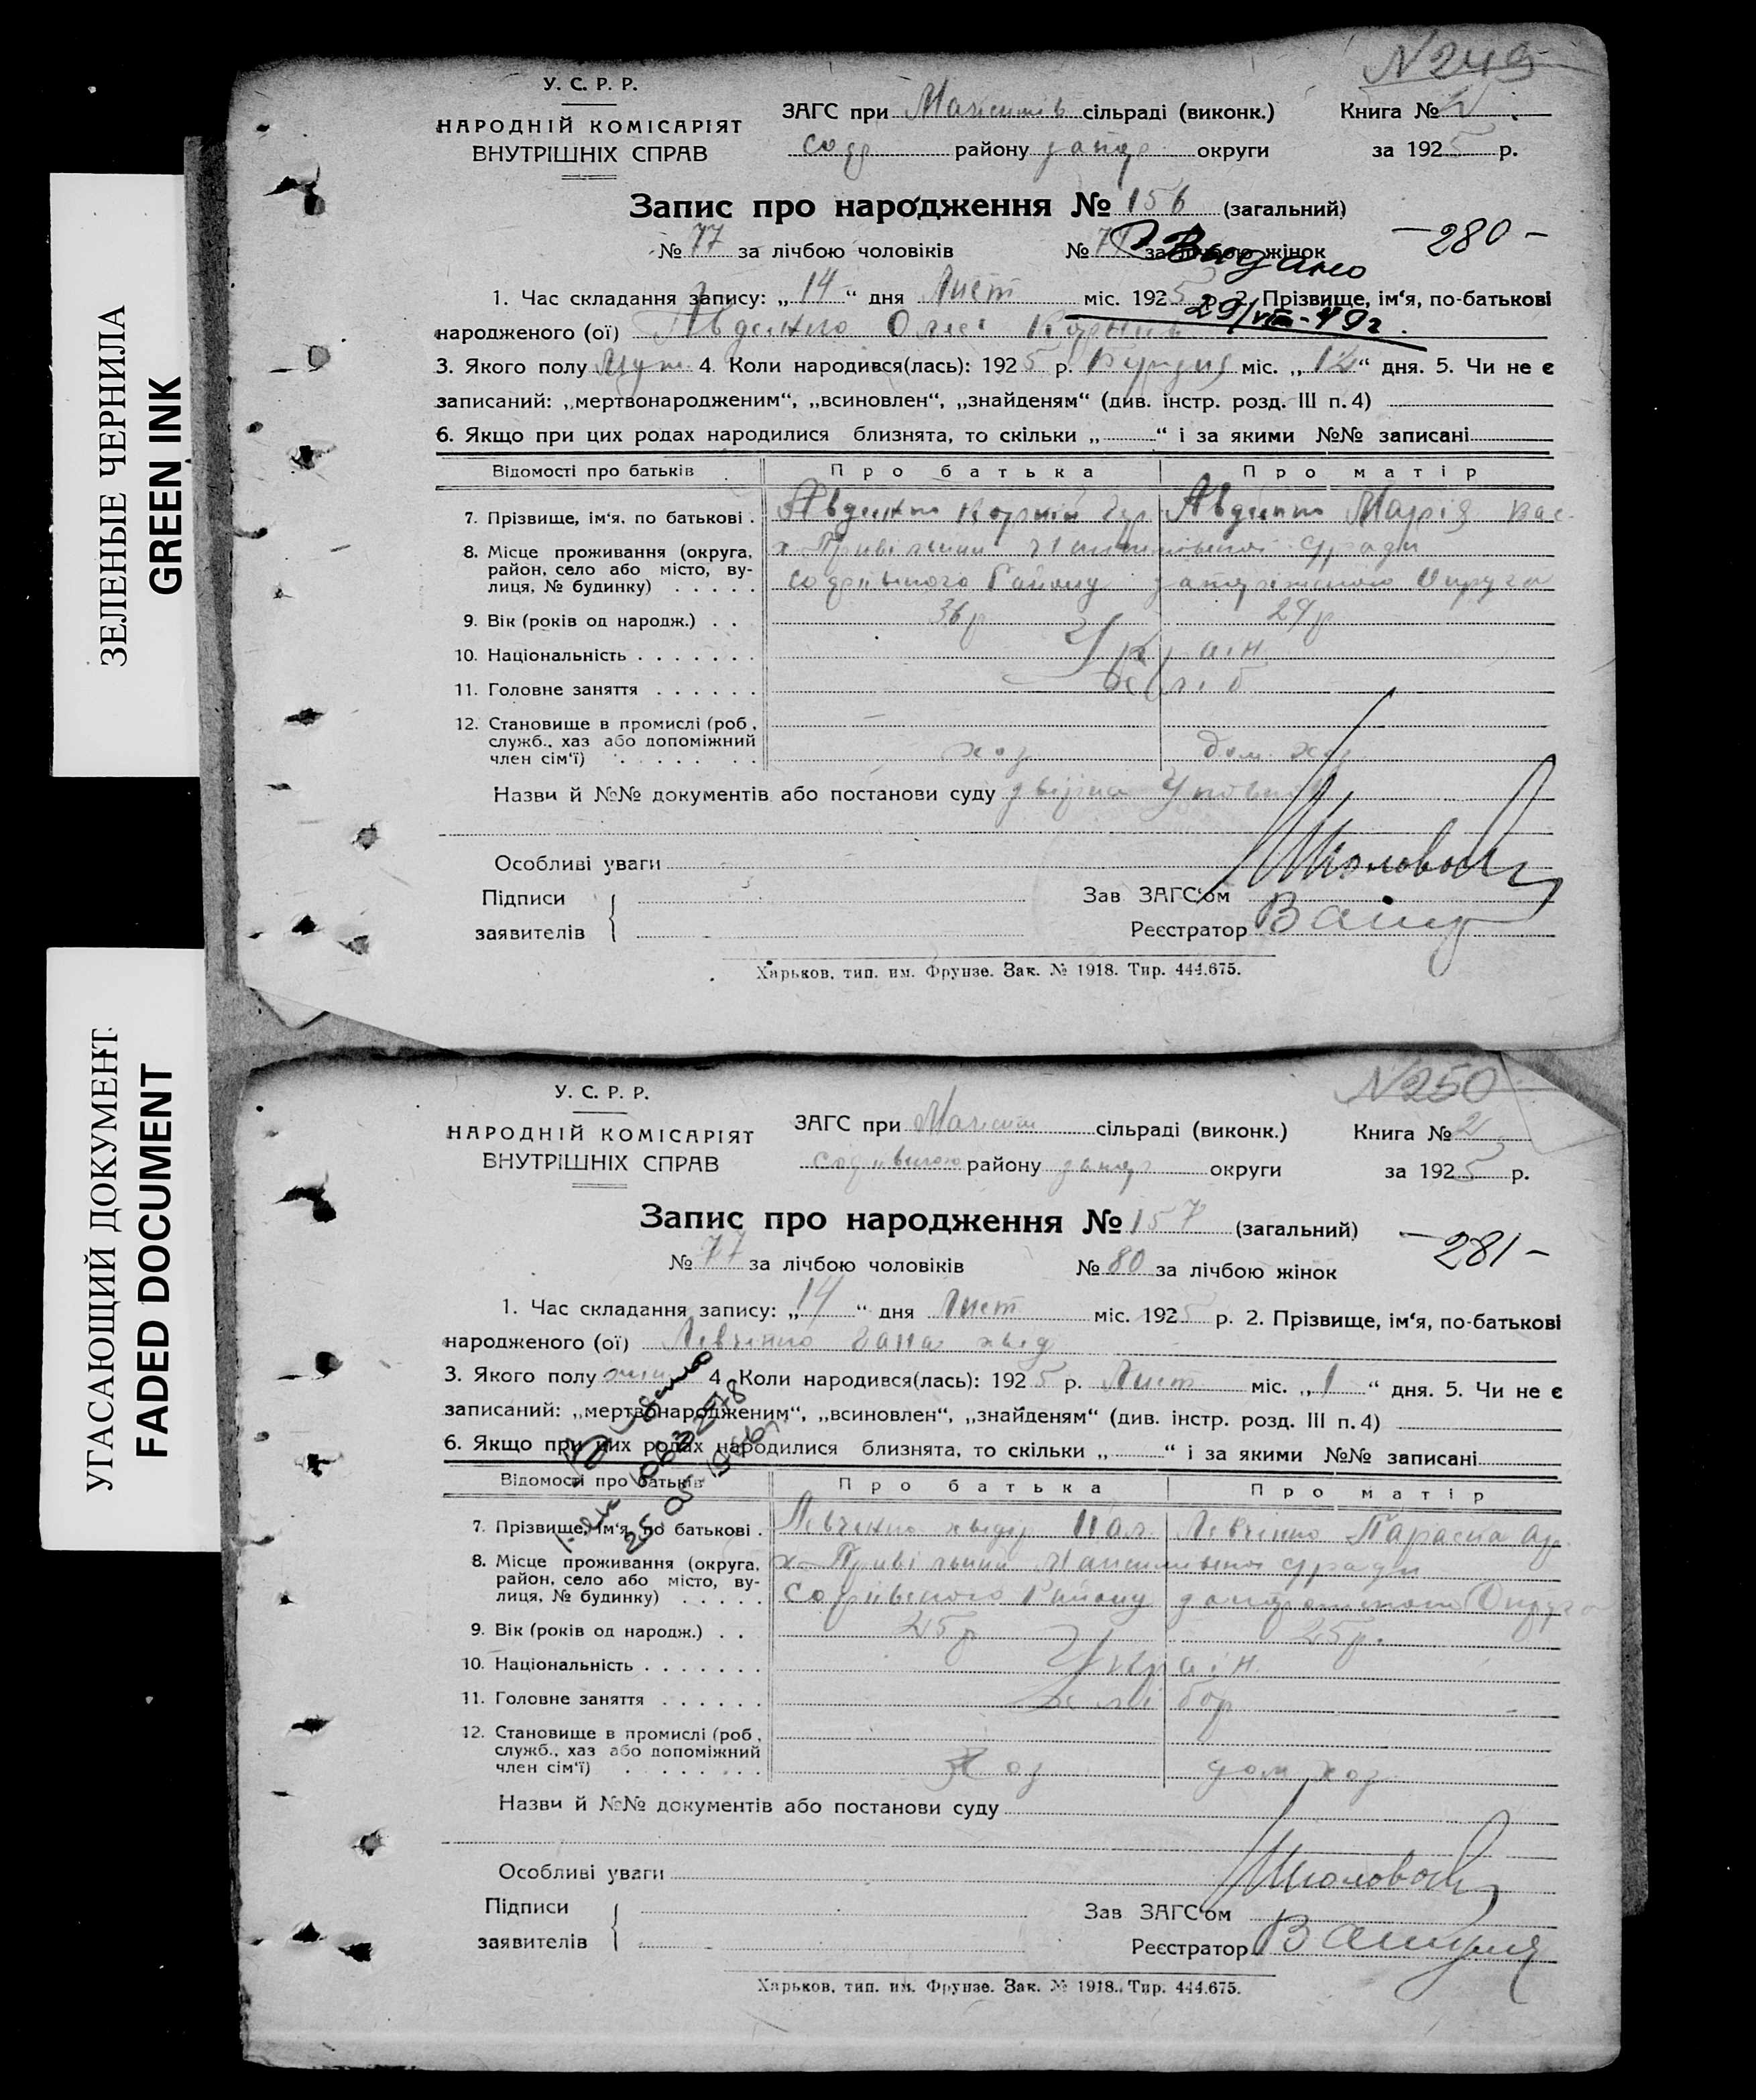 ЗЕЛЕНЫЕ ЧЕРНИЛА
GREEN INK
УГАСАЮЩИЙ ДОКУМЕНТ
FADED DOCUMENT
N 249
У. С. Р. Р.
НАРОДНІЙ КОМІСАРІЯТ
ВНУТРІШНІХ СПРАВ
ЗАГС при сільраді (виконк.)
району округи
Книга № 2
за 1925 р.
Запис про народження № 156 (загальний)
№ 77 за лічбою чоловіків № за лічбою жінок
Видано
29/VIII-49г.
— 280 —
1. Час складання запису: „14“ дня Лист міс. 1925 р. 2. Прізвище, ім‘я, по-батькові
народженого (ої) Авденко Олек
3. Якого полу Муж. 4. Коли народився(лась): 1925 р. міс. „12“ дня. 5. Чи не є
записаний: „мертвонародженим“, „всиновлен“, „знайденям“ (див. інстр. розд. III п. 4)
6. Якщо при цих родах народилися близнята, то скільки „ “ і за якими №№ записані
Відомості про батьків Про батька Про матір
7. Прізвище, ім‘я, по батькові . Авденко Корній Авденко Марія Вас
8. Місце проживання (округа,
район, село або місто, ву-
лиця, № будинку) . . . . .
х. Привільний
Району Округа
9. Вік (років од народж.) . . 36 р 29 р
10. Національність . . . . . . . Украін
11. Головне заняття . . . . . . хліб
12. Становище в промислі (роб,
служб., хаз або допоміжний
член сім‘ї) . . . . . . . хоз дом. хоз
Назви й №№ документів або постанови суду
Особливі уваги
Підписи
заявителів
Зав ЗАГС‘ом
Реєстратор
Харьков, тип. им. Фрунзе. Зак. № 1918. Тир. 444.675.
N 250
У. С. Р. Р.
НАРОДНІЙ КОМІСАРІЯТ
ВНУТРІШНІХ СПРАВ
ЗАГС при сільраді (виконк.)
району округи
Книга № 2
за 1925 р.
Запис про народження № 157 (загальний)
№ 77 за лічбою чоловіків № 80 за лічбою жінок
— 281 —
1. Час складання запису: „14“ дня Лист міс. 1925 р. 2. Прізвище, ім‘я, по-батькові
народженого (ої) Левченко Гана хвед
3. Якого полу жін 4. Коли народився(лась): 1925 р. Лист міс. „1“ дня. 5. Чи не є
записаний: „мертвонародженим“, „всиновлен“, „знайденям“ (див. інстр. розд. III п. 4)
6. Якщо при цих родах народилися близнята, то скільки „ “ і за якими №№ записані
Відомості про батьків Про батька Про матір
7. Прізвище, ім‘я, по батькові . Левченко хведір Левченко Параска
8. Місце проживання (округа,
район, село або місто, ву-
лиця, № будинку) . . . . .
х. Привільний
Району Округа
9. Вік (років од народж.) . . 25 р 25 р.
10. Національність . . . . . . . Украін
11. Головне заняття . . . . . . хлібор
12. Становище в промислі (роб,
служб., хаз або допоміжний
член сім‘ї) . . . . . . . Хоз дом хоз
Назви й №№ документів або постанови суду
Особливі уваги
Підписи
заявителів
Зав ЗАГС‘ом
Реєстратор
Харьков, тип. им. Фрунзе. Зак. № 1918. Тир. 444.675.